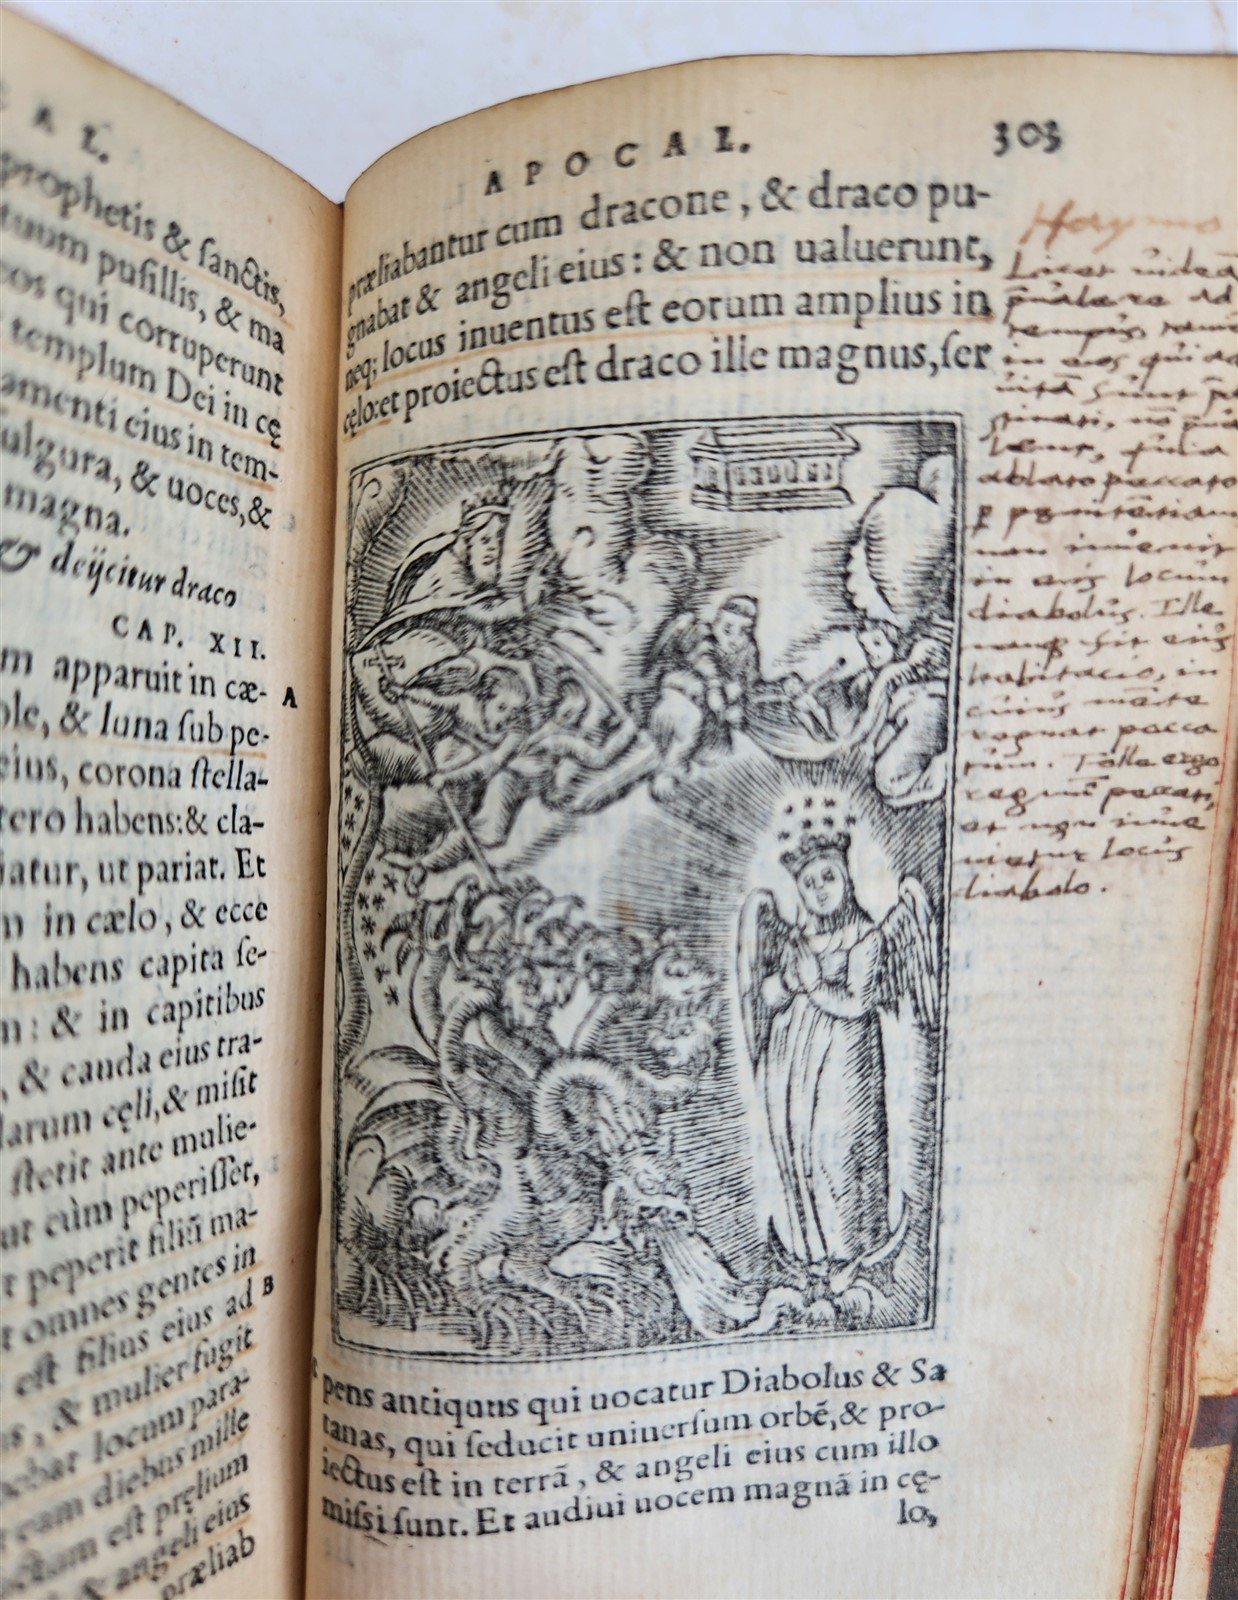 A L.
prophetis & sanctis,
tuum pusillis, & ma
cos qui corruperunt
templum Dei in cę
amenti eius in tem-
fulgura, & uoces, &
magna.
& deijcitur draco
CAP. XII.
m apparuit in cæ- A
ole, & luna sub pe-
eius, corona stella-
tero habens: & cla-
iatur, ut pariat. Et
m in cælo, & ecce
habens capita se-
m: & in capitibus
, & cauda eius tra-
larum cęli, & misit
stetit ante mulie-
ut cùm peperisset,
t peperit filiũ ma-
t omnes gentes in
est filius eius ad B
s, & mulier fugit
bebat locum para-
t eam diebus mille
ctum est pręlium
& angeli eius
præliab
APOCAL. 303
præliabantur cum dracone, & draco pu-
gnabat & angeli eius: & non ualuerunt,
neq; locus inuentus est eorum amplius in
cęlo: et proiectus est draco ille magnus, ser
pens antiquus qui uocatur Diabolus & Sa
tanas, qui seducit uniuersum orbẽ, & pro-
iectus est in terrã, & angeli eius cum illo
missi sunt. Et audiui uocem magnã in cę-
lo,
Haymo
Licet uideã
p̃ualere ad
tempus, tamẽ
in eos qui ad
uitã sunt p̃
stinati, nõ p̃ua
lent, quia
ablato peccato
p pœnitentiam
non inuenit
in eis locum
diabolus. Ille
namq sit eius
habitatio, in
cuius mẽte
regnat pecca
tum. Tolle ergo
regnũ peccati,
et non inue
nietur locus
diabolo.